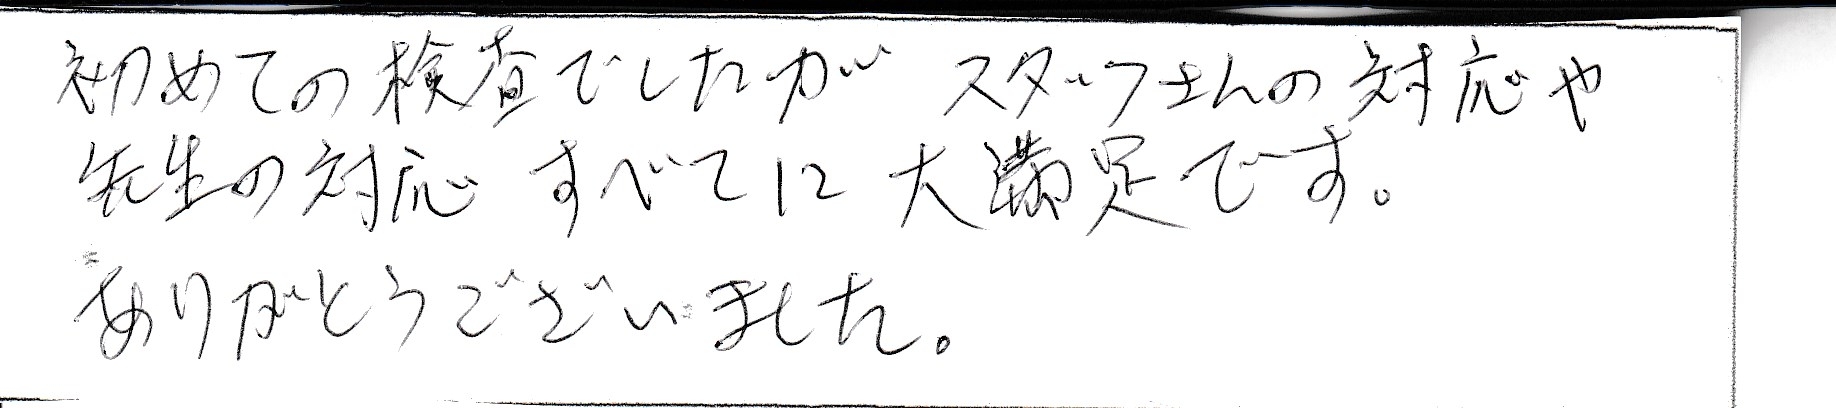 初めての検査でしたが スタッフさんの対応や
先生の対応 すべてに大満足です。
ありがとうございました。